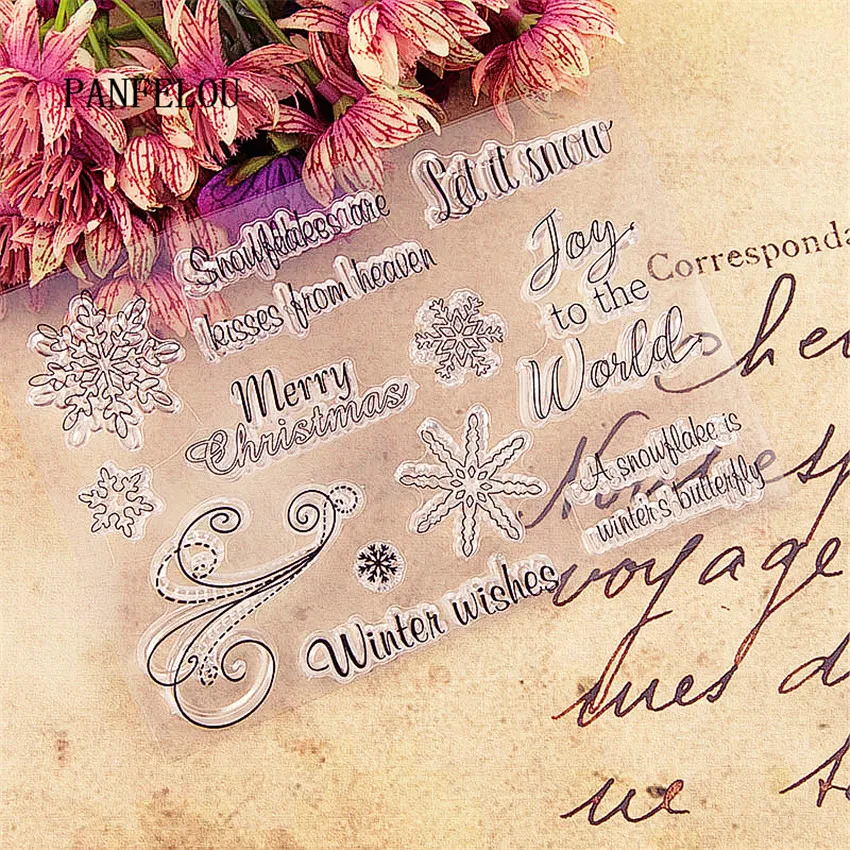 PANFELOU
Let it snow
Snowflakes are
kisses from heaven
Joy
to the
World
Merry
Christmas
A snowflake is
winter's butterfly
Winter wishes
Corresponda
voyage